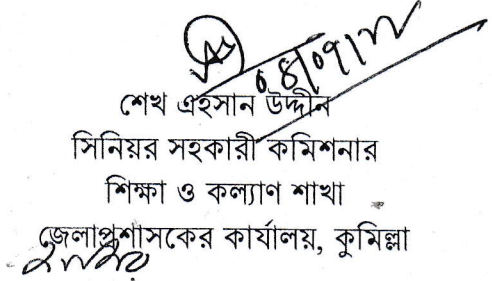 ০৪/০৭/
শেখ এহসান উদ্দীন
সিনিয়র সহকারী কমিশনার
শিক্ষা ও কল্যাণ শাখা
জেলাপ্রশাসকের কার্যালয়, কুমিল্লা